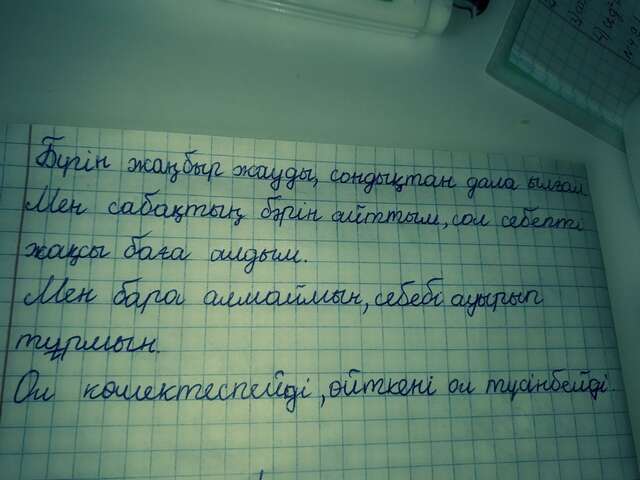 Бүгін жаңбыр жауды, сондықтан дала ылғал
Мен сабақтың бәрін айттым, сол себепті
жақсы баға алдым.
Мен бара алмаймын, себебі ауырып
тұрмын.
Ол көмектеспейді, өйткені ол түсінбейді